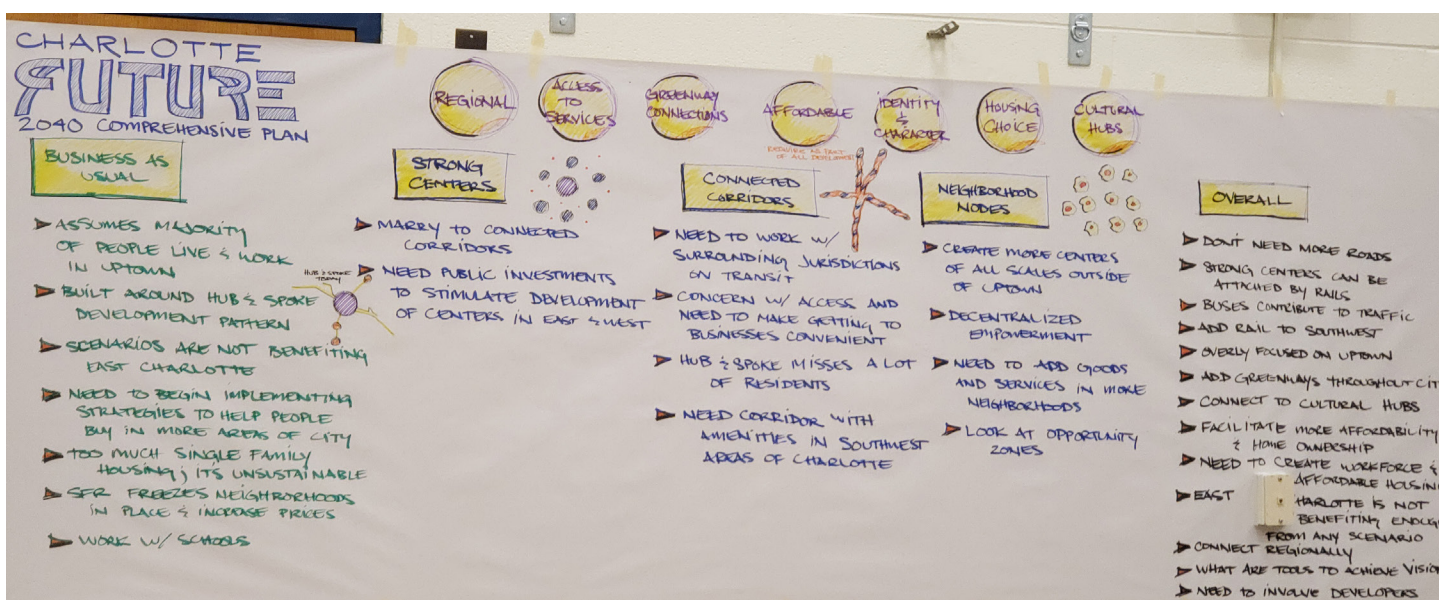 CHARLOTTE
FUTURE
2040 COMPREHENSIVE PLAN
REGIONAL
ACCESS
TO
SERVICES
GREENWAY
CONNECTIONS
AFFORDABLE
IDENTITY
&
CHARACTER
HOUSING
CHOICE
CULTURAL
HUBS
BUSINESS AS
USUAL
ASSUMES MAJORITY
OF PEOPLE LIVE & WORK
IN UPTOWN
BUILT AROUND HUB & SPOKE
DEVELOPMENT PATTERN
SCENARIOS ARE NOT BENEFITING
EAST CHARLOTTE
NEED TO BEGIN IMPLEMENTING
STRATEGIES TO HELP PEOPLE
BUY IN MORE AREAS OF CITY
TOO MUCH SINGLE FAMILY
HOUSING; ITS UNSUSTAINABLE
SFR FREEZES NEIGHBORHOODS
IN PLACE & INCREASE PRICES
WORK W/ SCHOOLS
HUB & SPOKE
TODAY
STRONG
CENTERS
MARRY TO CONNECTED
CORRIDORS
NEED PUBLIC INVESTMENTS
TO STIMULATE DEVELOPMENT
OF CENTERS IN EAST & WEST
REQUIRE AS PART
OF ALL DEVELOPMENT
CONNECTED
CORRIDORS
NEED TO WORK W/
SURROUNDING JURISDICTIONS
ON TRANSIT
CONCERN W/ ACCESS AND
NEED TO MAKE GETTING TO
BUSINESSES CONVENIENT
HUB & SPOKE MISSES A LOT
OF RESIDENTS
NEED CORRIDOR WITH
AMENITIES IN SOUTHWEST
AREAS OF CHARLOTTE
NEIGHBORHOOD
NODES
CREATE MORE CENTERS
OF ALL SCALES OUTSIDE
OF UPTOWN
DECENTRALIZED
EMPOWERMENT
NEED TO ADD GOODS
AND SERVICES IN MORE
NEIGHBORHOODS
LOOK AT OPPORTUNITY
ZONES
OVERALL
DON'T NEED MORE ROADS
STRONG CENTERS CAN BE
ATTACHED BY RAILS
BUSES CONTRIBUTE TO TRAFFIC
ADD RAIL TO SOUTHWEST
OVERLY FOCUSED ON UPTOWN
ADD GREENWAYS THROUGHOUT CIT
CONNECT TO CULTURAL HUBS
FACILITATE MORE AFFORDABILITY
& HOME OWNERSHIP
NEED TO CREATE WORKFORCE &
AFFORDABLE HOUSIN
EAST HARLOTTE IS NOT
BENEFITING ENOUG
FROM ANY SCENARIO
CONNECT REGIONALLY
WHAT ARE TOOLS TO ACHIEVE VISIO
NEED TO INVOLVE DEVELOPERS